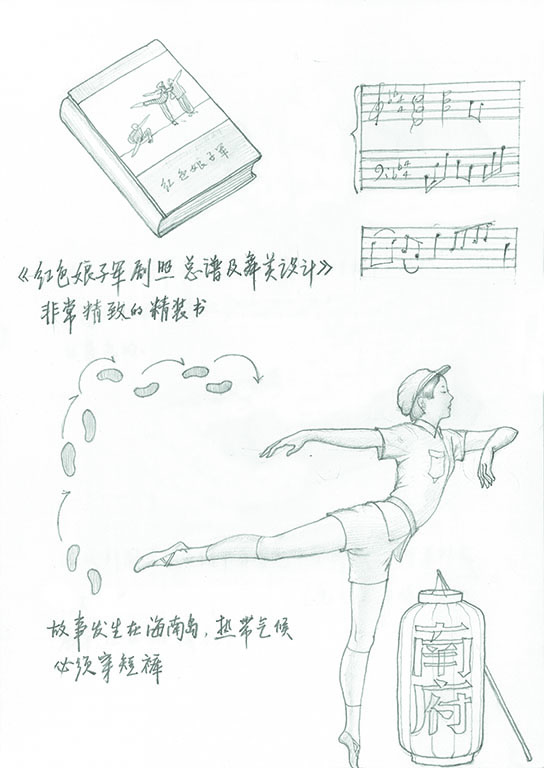 红色娘子军
《红色娘子军剧照 总谱及舞美设计》
非常精致的精装书
故事发生在海南岛，热带气候
必须穿短裤
南府